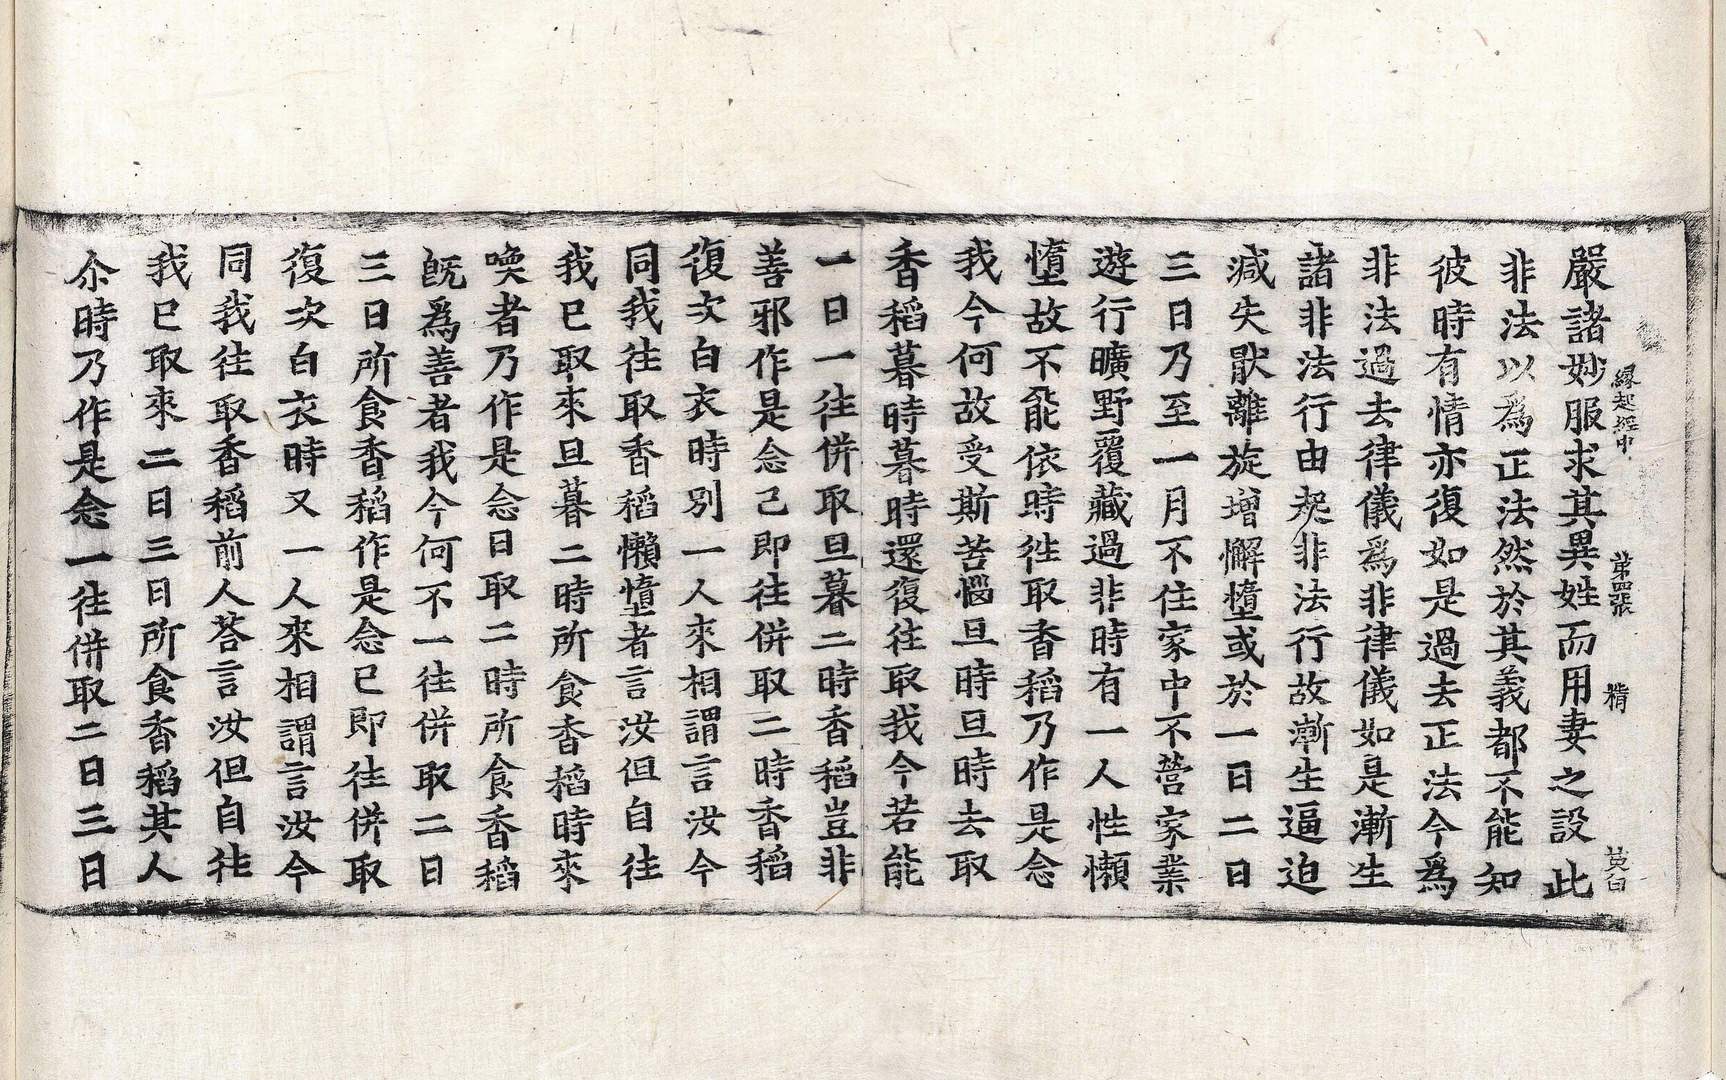 緣起經中 第四張 楕
嚴諸妙服求其異姓而用妻之設此
非法以爲正法然於其義都不能知
彼時有情亦復如是過去正法今爲
非法過去律儀爲非律儀如是漸生
諸非法行由起非法行故漸生逼迫
減失猒離旋增懈憜或於一日二日
三日乃至一月不住家中不營家業
遊行曠野覆藏過非時有一人性懶
憜故不能依時徃取香稻乃作是念
我今何故受斯苦惱旦時旦時去取
香稻暮時暮時還復徃取我今若能
一日一徃併取旦暮二時香稻豈非
善邪作是念已即徃併取二時香稻
復次白衣時別一人來相謂言汝今
同我徃取香稻懶憜者言汝但自徃
我已取來旦暮二時所食香稻時來
喚者乃作是念日取二時所食香稻
旣爲善者我今何不一徃併取二日
三日所食香稻作是念已即徃併取
復次白衣時又一人來相謂言汝今
同我徃取香稻前人荅言汝但自徃
我已取來二日三日所食香稻其人
尒時乃作是念一徃併取二日三日